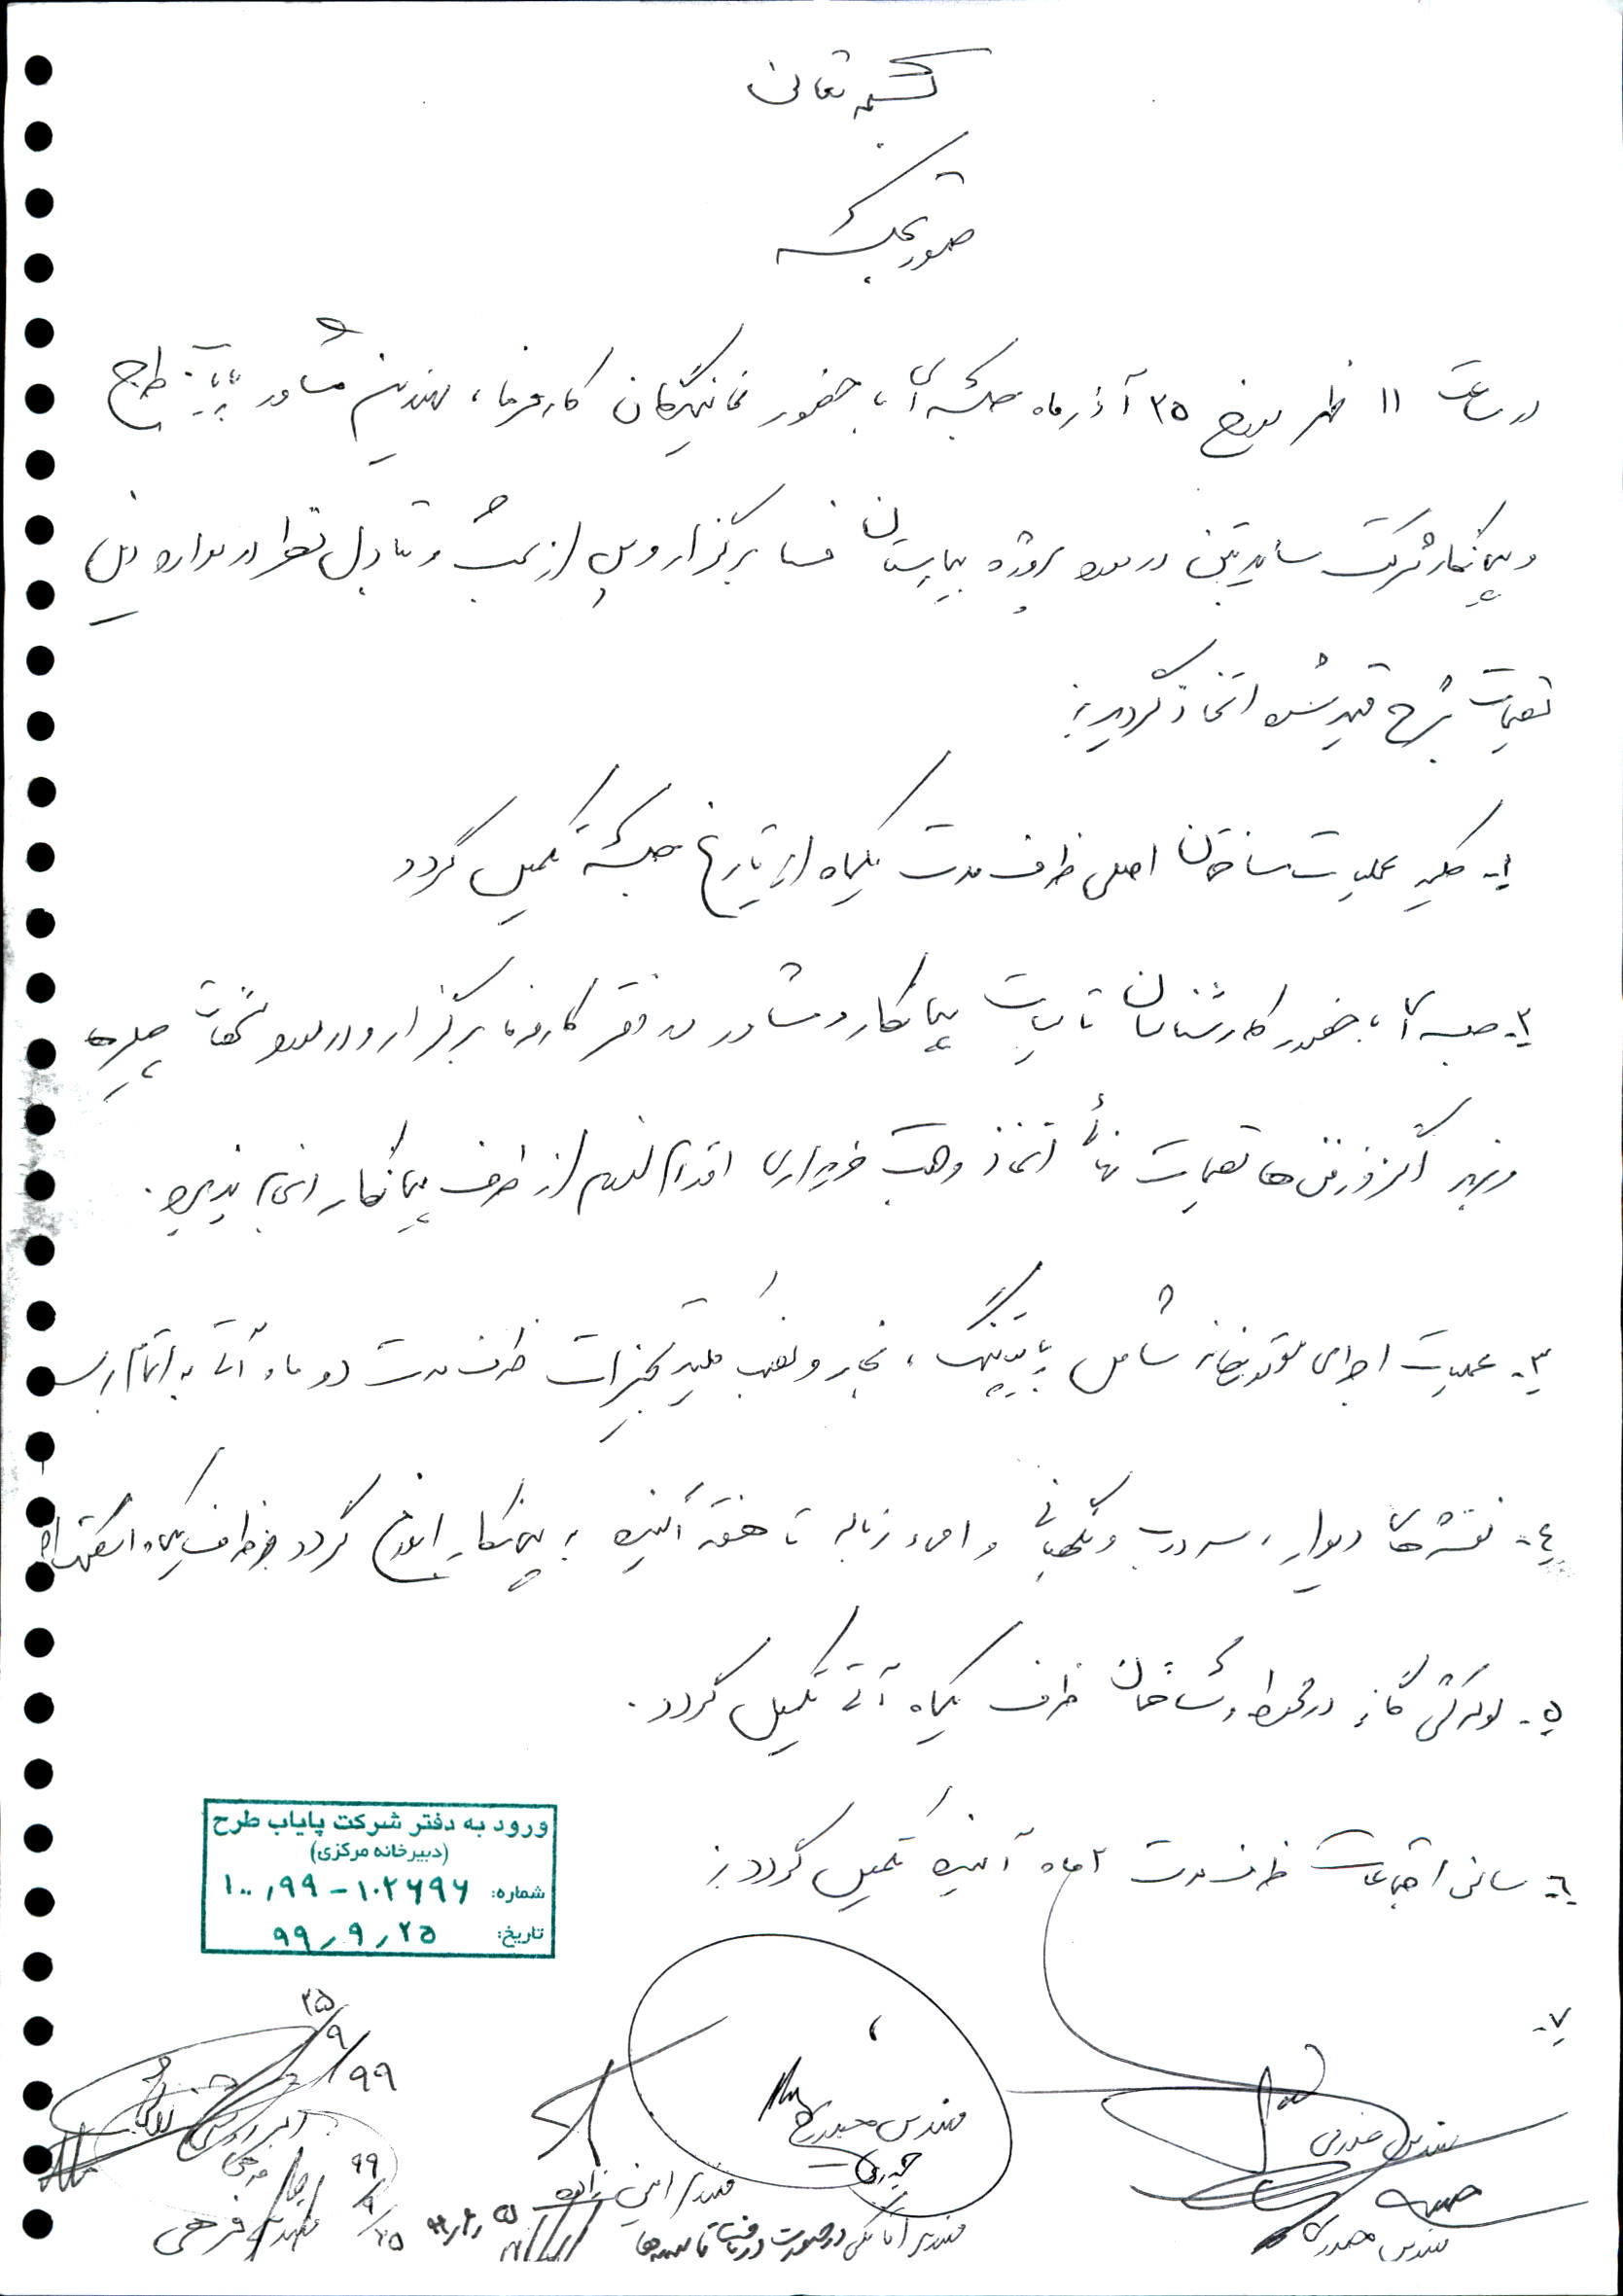 بسمه تعالی
صورتجلسه
در ساعت ۱۱ ظهر مورخ ۲۵ آذر ماه جلسه‌ای با حضور نمایندگان کارفرما، مهندسین مشاور پایاب طرح
و پیمانکار شرکت در مورد پروژه بیمارستان فسا برگزار و پس از بحث و تبادل نظر در موارد ذیل
تصمیمات بشرح قید شده اتخاذ گردید:
۱- کلیه عملیات ساختمان اصلی ظرف مدت یکماه از تاریخ جلسه تکمیل گردد
۲- جلسه‌ای با حضور کارشناسان تاسیسات پیمانکار و مشاور در دفتر کارفرما برگزار و در مورد چیلرها
و نیز اگزوزفن‌ها تصمیمات نهائی اتخاذ و جهت خریداری اقدام لازم از طرف پیمانکار انجام پذیرد.
۳- عملیات اجرای موتورخانه شامل پایپینگ، و نصب کلیه تجهیزات ظرف مدت دو ماه آتی به اتمام برسد
۴- نقشه‌های دیوار، سردرب و نگهبانی و امحاء زباله تا هفته آینده به پیمانکار ابلاغ گردد
۵- لوله‌کشی گاز در محوطه و ساختمان ظرف یکماه آتی تکمیل گردد.
۶- سالن اجتماعات ظرف مدت ۲ ماه آینده تکمیل گردد.
۷-
ورود به دفتر شرکت پایاب طرح
(دبیرخانه مرکزی)
شماره: ۱۰۰,۹۹-۱۰۲۶۹۶
تاریخ: ۹۹,۹,۲۵
۹۹/۹/۲۵
مهندس حیدری
مهندس
مهندس امینی زاده
مهندس فرهی
۹۹/۹/۲۵